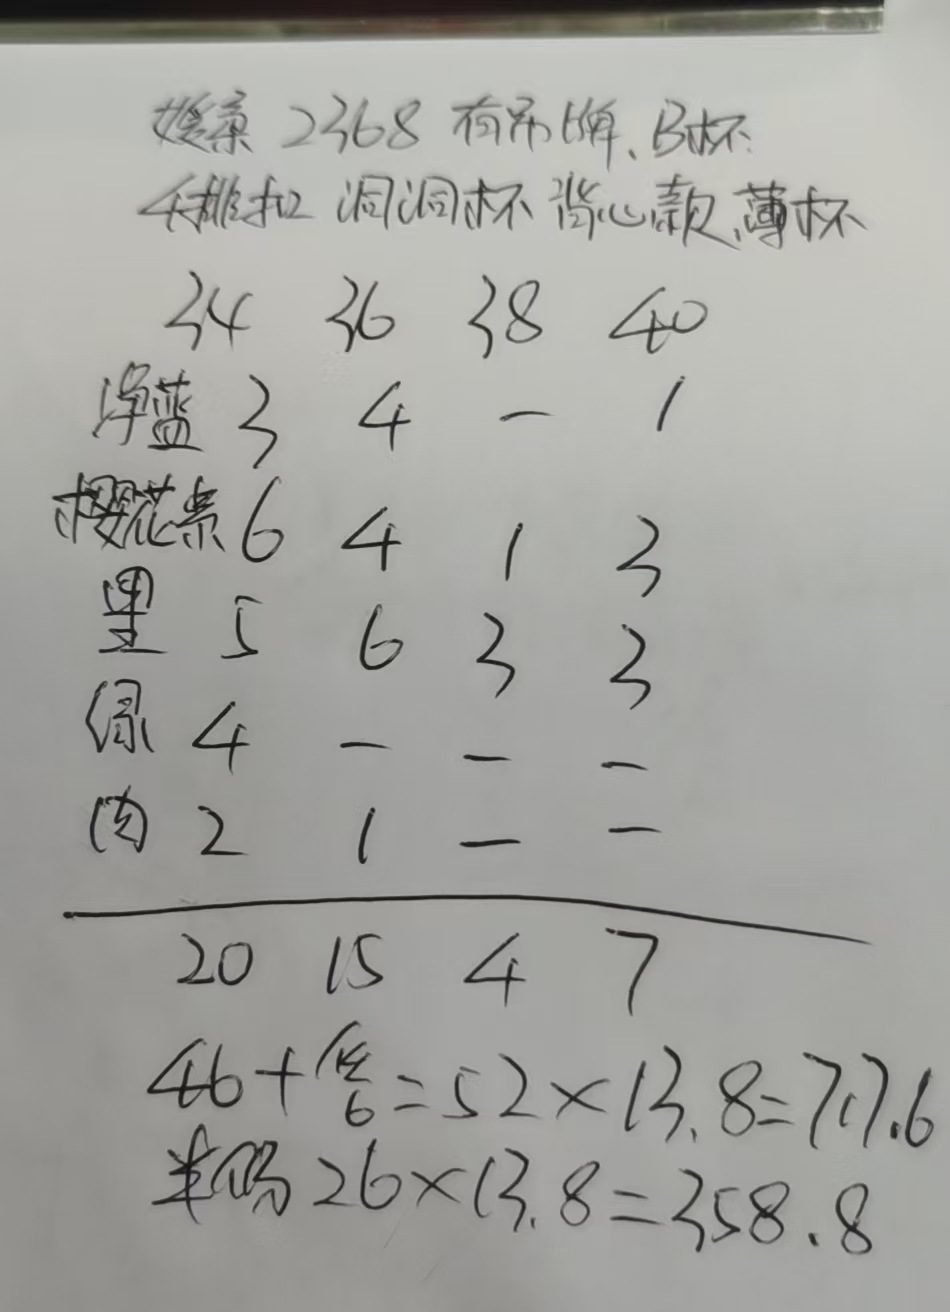 媛索 2368 有吊牌、B杯
4排扣 洞洞杯 背心款、薄杯
34 36 38 40
净蓝 3 4 — 1
樱花紫 6 4 1 3
黑 5 6 3 3
绿 4 — — —
肉 2 1 — —
20 15 4 7
46+ 6=52×13.8=717.6
半码 26×13.8=358.8